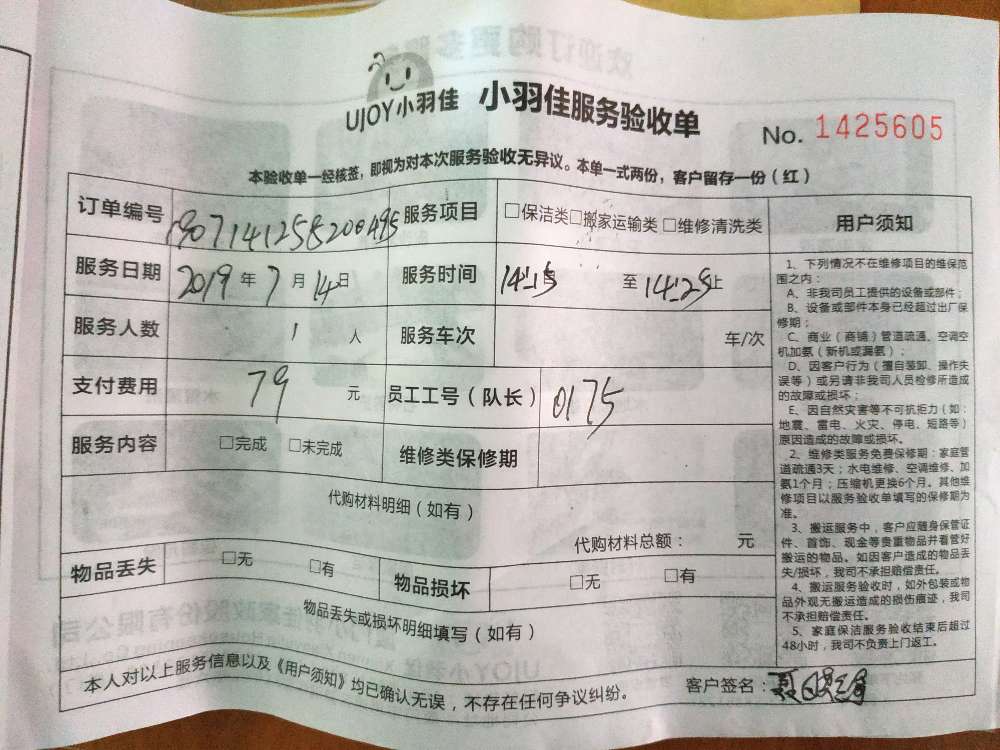 UJOY小羽佳 小羽佳服务验收单
No. 1425605
本验收单一经核签，即视为对本次服务验收无异议。本单一式两份，客户留存一份（红）
订单编号 190714125820 0495 服务项目 □保洁类□搬家运输类 □维修清洗类
服务日期 2019 年 7 月 14 日 服务时间 14:15 至 14:25止
服务人数 1 人 服务车次 车/次
支付费用 79 元 员工工号（队长） 0175
服务内容 □完成 □未完成 维修类保修期
代购材料明细（如有）
代购材料总额： 元
物品丢失 □无 □有 物品损坏 □无 □有
物品丢失或损坏明细填写（如有）
用户须知
1、下列情况不在维修项目的维保范
围之内：
A、非我司员工提供的设备或部件；
B、设备或部件本身已经超过出厂保
修期；
C、商业（商铺）管道疏通、空调空
机加氨（新机或漏氨）；
D、因客户行为（擅自装卸、操作失
误等）或另请非我司人员检修所造成
的故障或损坏；
E、因自然灾害等不可抗拒力（如：
地震、雷电、火灾、停电、短路等）
原因造成的故障或损坏。
2、维修类服务免费保修期：家庭管
道疏通3天；水电维修、空调维修、加
氨1个月；压缩机更换6个月。其他维
修项目以服务验收单填写的保修期为
准。
3、搬运服务中，客户应随身保管证
件、首饰、现金等贵重物品并看管好
搬运的物品。如因客户造成的物品丢
失/损坏，我司不承担赔偿责任。
4、搬运服务验收时，如外包装或物
品外观无搬运造成的损伤痕迹，我司
不承担赔偿责任。
5、家庭保洁服务验收结束后超过
48小时，我司不负责上门返工。
本人对以上服务信息以及《用户须知》均已确认无误，不存在任何争议纠纷。 客户签名：